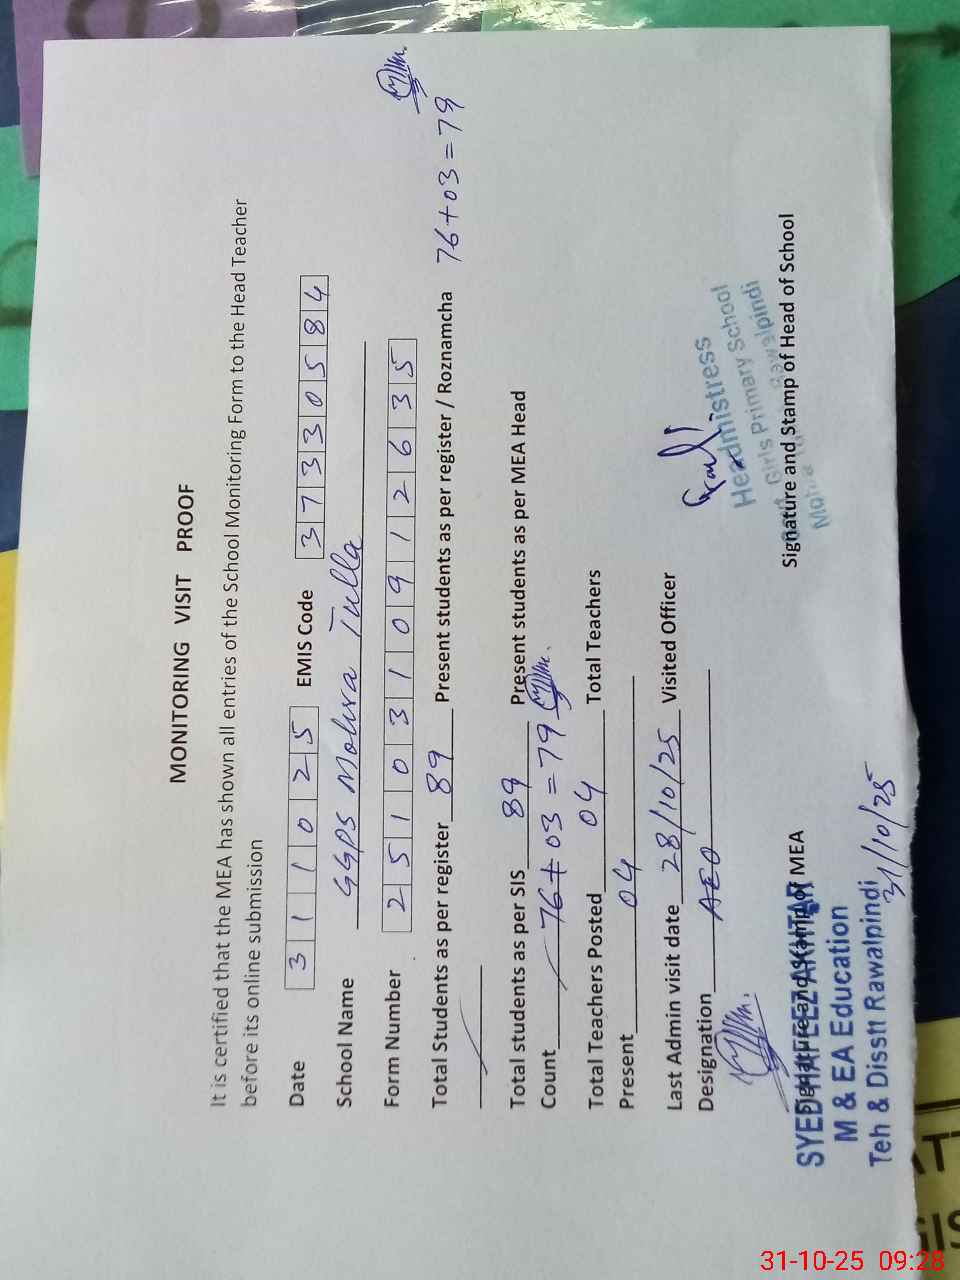 MONITORING VISIT PROOF
It is certified that the MEA has shown all entries of the School Monitoring Form to the Head Teacher
before its online submission
Date 3 1 1 0 2 5 EMIS Code 3 7 3 3 0 5 8 4
School Name GGPS Mohra Tulla
Form Number 2 5 1 0 3 1 0 9 1 2 6 3 5
Total Students as per register 89 Present students as per register / Roznamcha 76+03=79
Total students as per SIS 89 Present students as per MEA Head
Count 76+03=79
Total Teachers Posted 04 Total Teachers
Present 04
Last Admin visit date 28/10/25 Visited Officer
Designation AEO
Headmistress
Girls Primary School
Rawalpindi
Signature and Stamp of MEA Signature and Stamp of Head of School
SYED HAFEEZ AKHTAR
M & EA Education
Teh & Disstt Rawalpindi
31/10/25
31-10-25 09:28